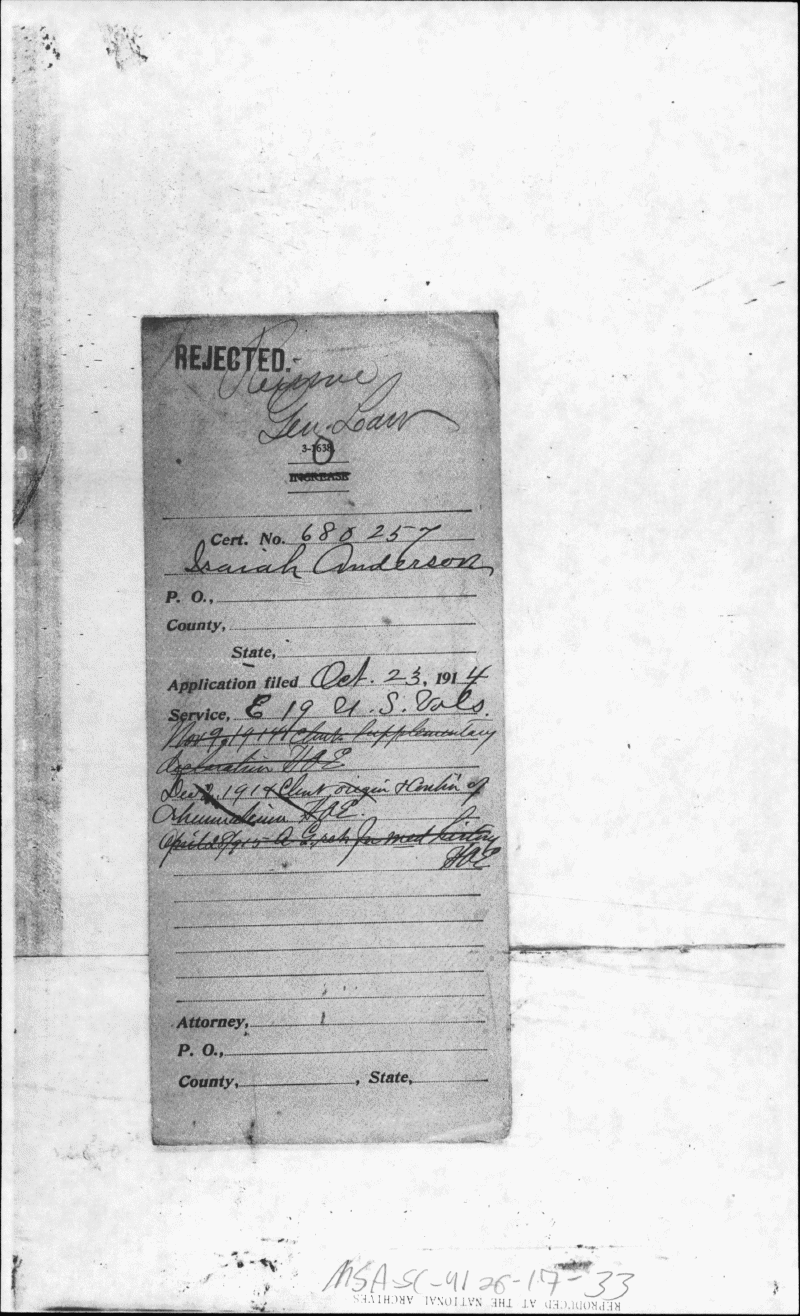 REJECTED.
Gen. Law
3-1638
INCREASE
Cert. No. 680257
Isaiah Anderson
P. O.,
County,
State,
Application filed Oct. 23, 1914
Service, E 19 U. S. Vols.
Nov 9, 1914 Clmt Supplementary
declaration HAE
Dec 2, 1914 Clmt origin & Contin of
rheumatism HAE.
April 28/915 A. G. for med history
HAE
Attorney,
P. O.,
County, , State,
MSA-SC-4126-17-33
REPRODUCED AT THE NATIONAL ARCHIVES